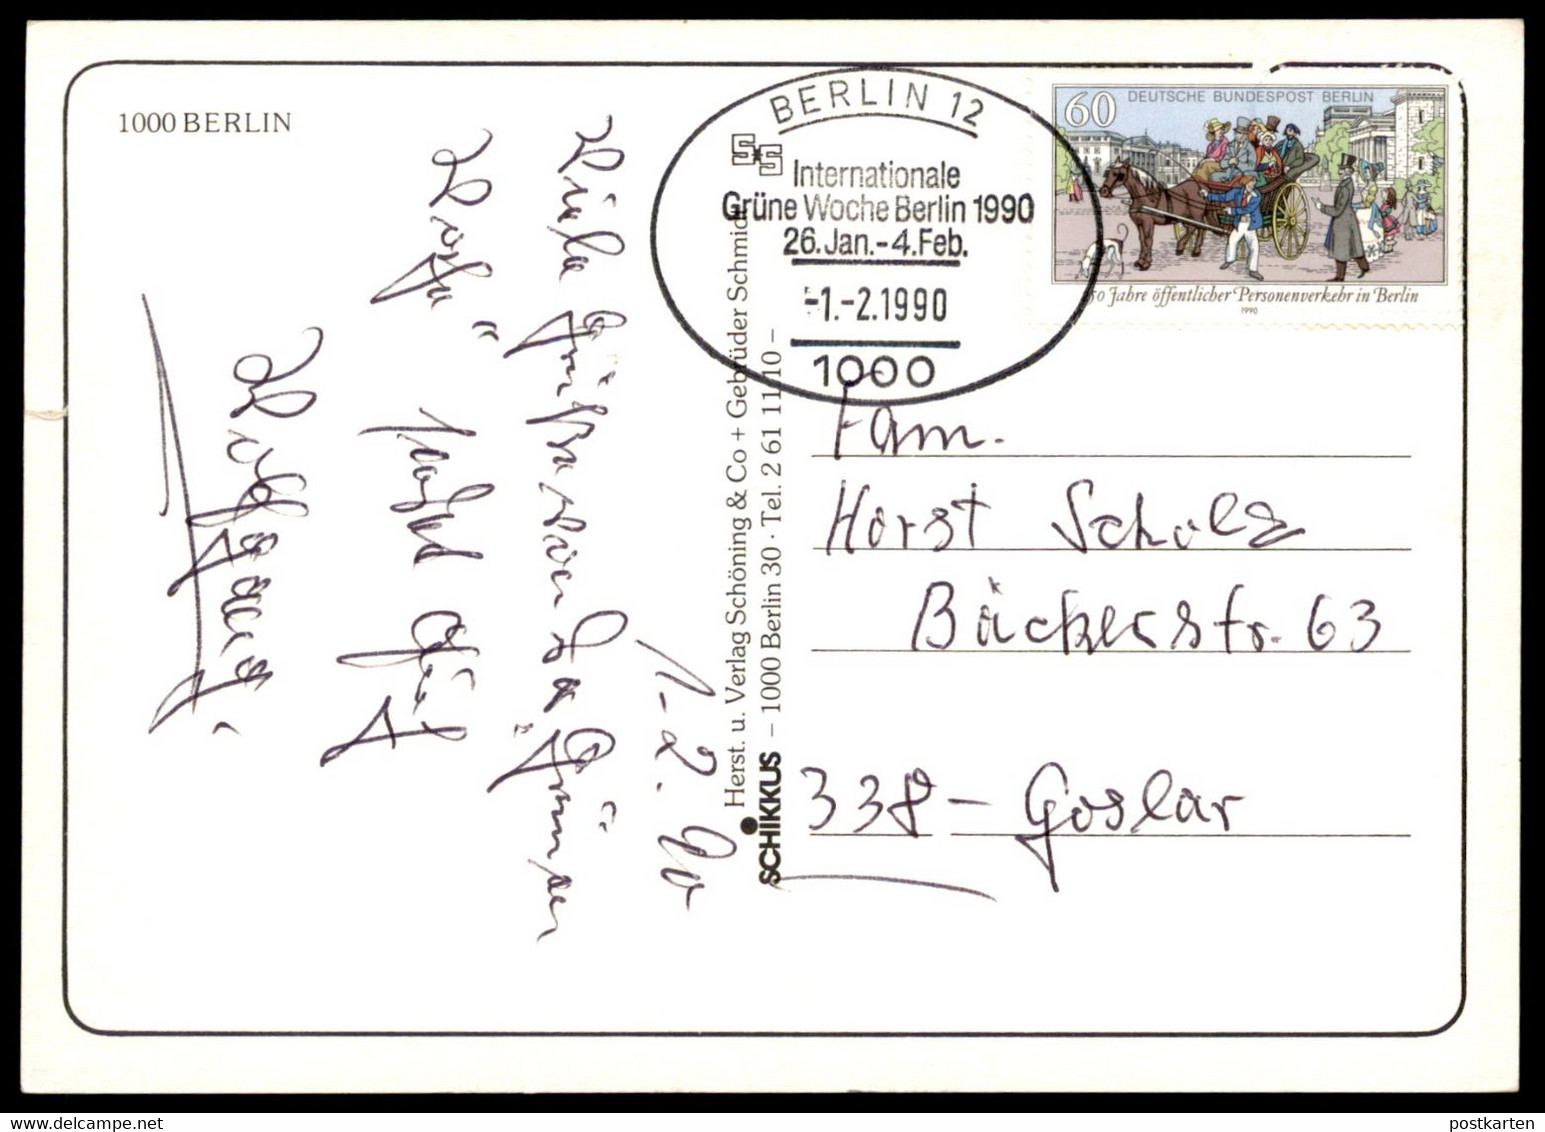 1000 BERLIN
BERLIN 12
Internationale
Grüne Woche Berlin 1990
26.Jan.-4.Feb.
-1.-2.1990
1000
60
DEUTSCHE BUNDESPOST BERLIN
50 Jahre öffentlicher Personenverkehr in Berlin
1990
1-2.90
Viele Grüße von der "Grünen
Woche"
Wolfgang
Herst. u. Verlag Schöning & Co + Gebrüder Schmidt
SCHIKKUS – 1000 Berlin 30 · Tel. 2 61 11 10 –
Fam.
Horst Scholz
Bäckerstr. 63
338 - Goslar
postkarten